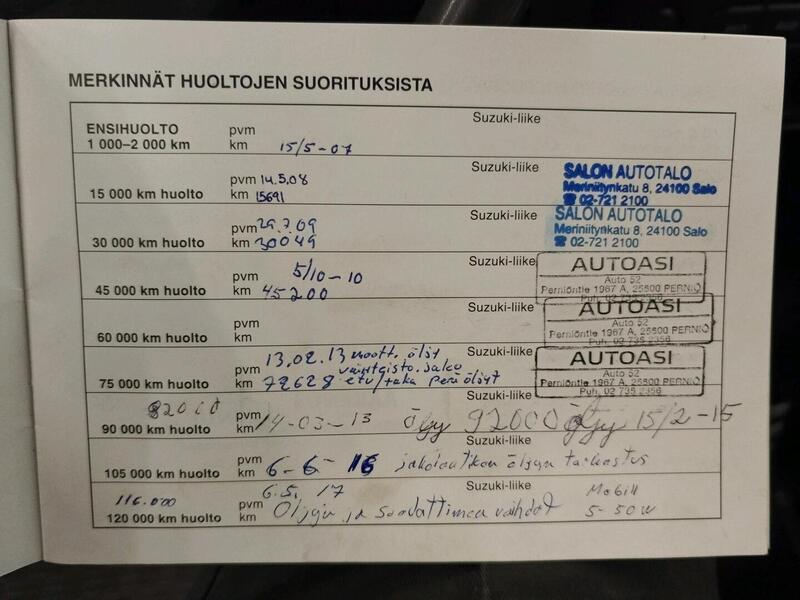 MERKINNÄT HUOLTOJEN SUORITUKSISTA
ENSIHUOLTO pvm Suzuki-liike
1 000–2 000 km km 15/5-07
pvm 14.5.08 Suzuki-liike SALON AUTOTALO
15 000 km huolto km 15691 Meriniitynkatu 8, 24100 Salo
☎ 02-721 2100
pvm 29.7.09 Suzuki-liike SALON AUTOTALO
30 000 km huolto km 30049 Meriniitynkatu 8, 24100 Salo
☎ 02-721 2100
pvm 5/10-10 Suzuki-liike AUTOASI
45 000 km huolto km 45200 Auto 52
Perniöntie 1967 A, 25500 PERNIÖ
Puh. 02 735 2356
pvm Suzuki-liike AUTOASI
60 000 km huolto km Auto 52
Perniöntie 1967 A, 25500 PERNIÖ
Puh. 02 735 2356
13.02.13 moott. öljyt Suzuki-liike AUTOASI
pvm vaihteisto. jako Auto 52
75 000 km huolto km 72628 etu/taka perä öljyt Perniöntie 1967 A, 25500 PERNIÖ
Puh. 02 735 2356
82000 pvm 14-03-13 öljy 92000 öljy 15/2-15
90 000 km huolto km Suzuki-liike
pvm 6-6-16 jakolaatikon öljyn tarkastus
105 000 km huolto km Suzuki-liike
116.000 pvm 6.5.17 Suzuki-liike Mobill
120 000 km huolto km Öljyn ja suodattimen vaihdot 5-50W